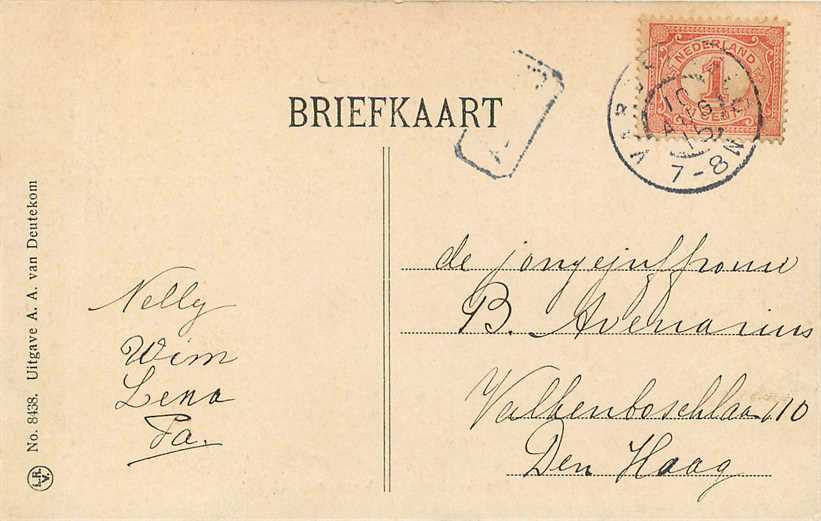 BRIEFKAART
NEDERLAND
1
CENT
10
AUG
15
7-8 N
Nelly
Wim
Lena
Pa.
de jongejuffrouw
B. Avenarius
Valkenboschlaan 110
Den Haag
No. 8438. Uitgave A. A. van Deutekom
L.R.
V.